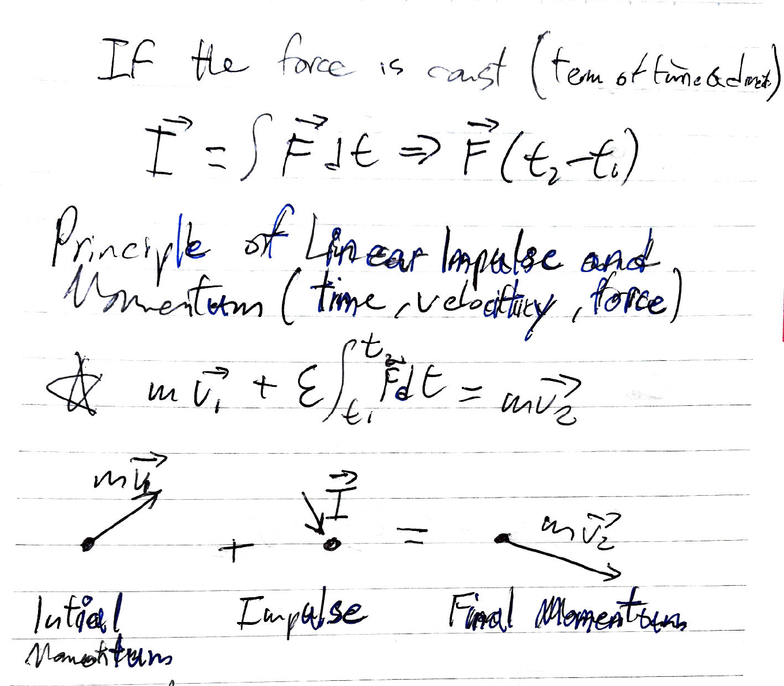 If the force is const (term of time &
I⃗ = ∫ F⃗ dt ⇒ F⃗ (t₂-t₁)
Principle of Linear Impulse and
Momentum (time, velocity, force)
☆ m v⃗₁ + Σ∫ₜ₁ᵗ² F⃗dt = mv⃗₂
mv⃗₁ + I⃗ = mv⃗₂
Intial Impulse Final Momentum
Momentum